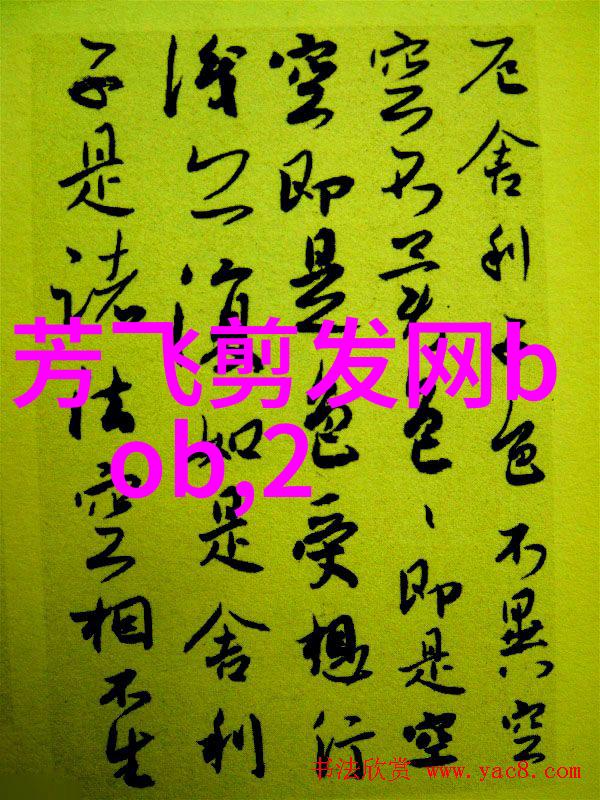 厄舍利子色不異空
空不異色、即是空
空即是色受想行
識亦復如是舍利
子是諸法空相不生
芳飞剪发网b
ob,2
书法欣赏 www.yac8.com